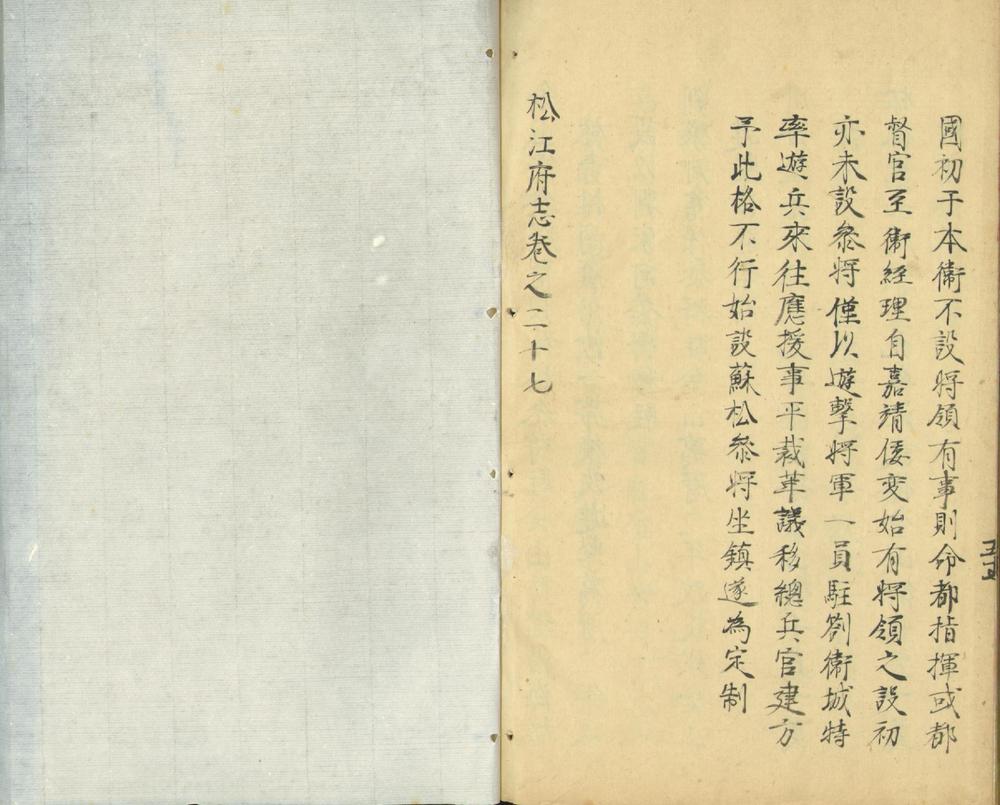 國初于本衞不設將領有事則命都指揮或都
督官至衞經理自嘉靖倭変始有將領之設初
亦未設叅將僅以遊擊將軍一員駐劄衞城特
率遊兵來往應援事平裁革議移總兵官建方
予此格不行始設蘇松叅將坐鎮遂為定制
松江府志卷之二十七